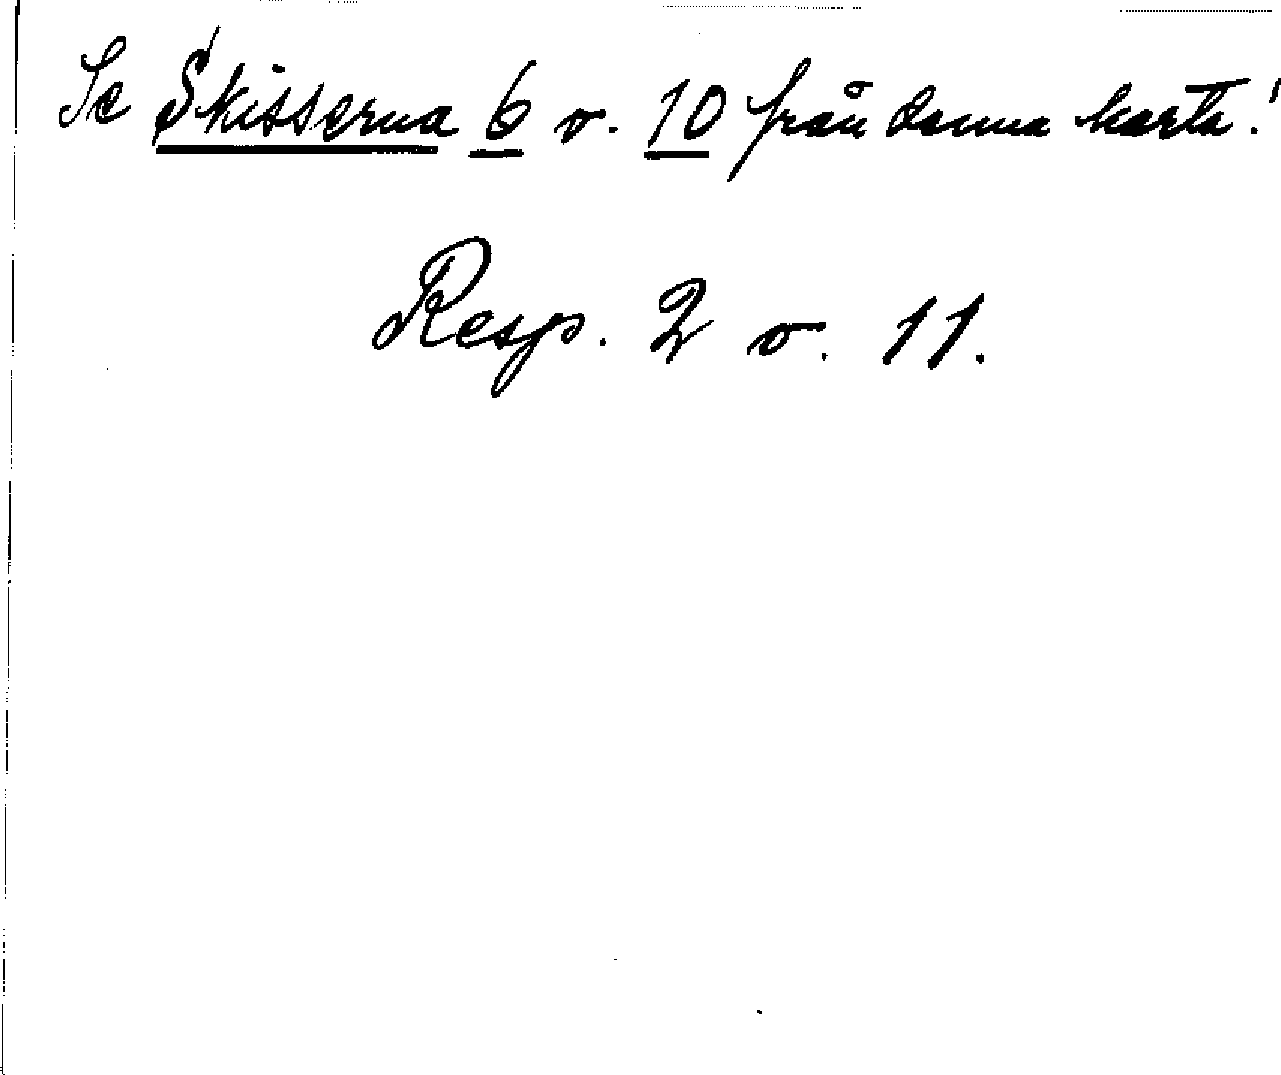 Se Skisserna 6 o. 10 från denna karta!
Resp. 2 o. 11.